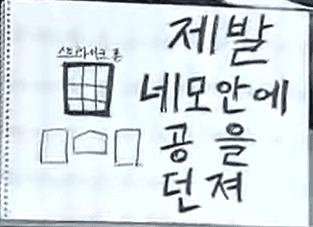 스트라이크 존
제발
네모안에
공을
던져